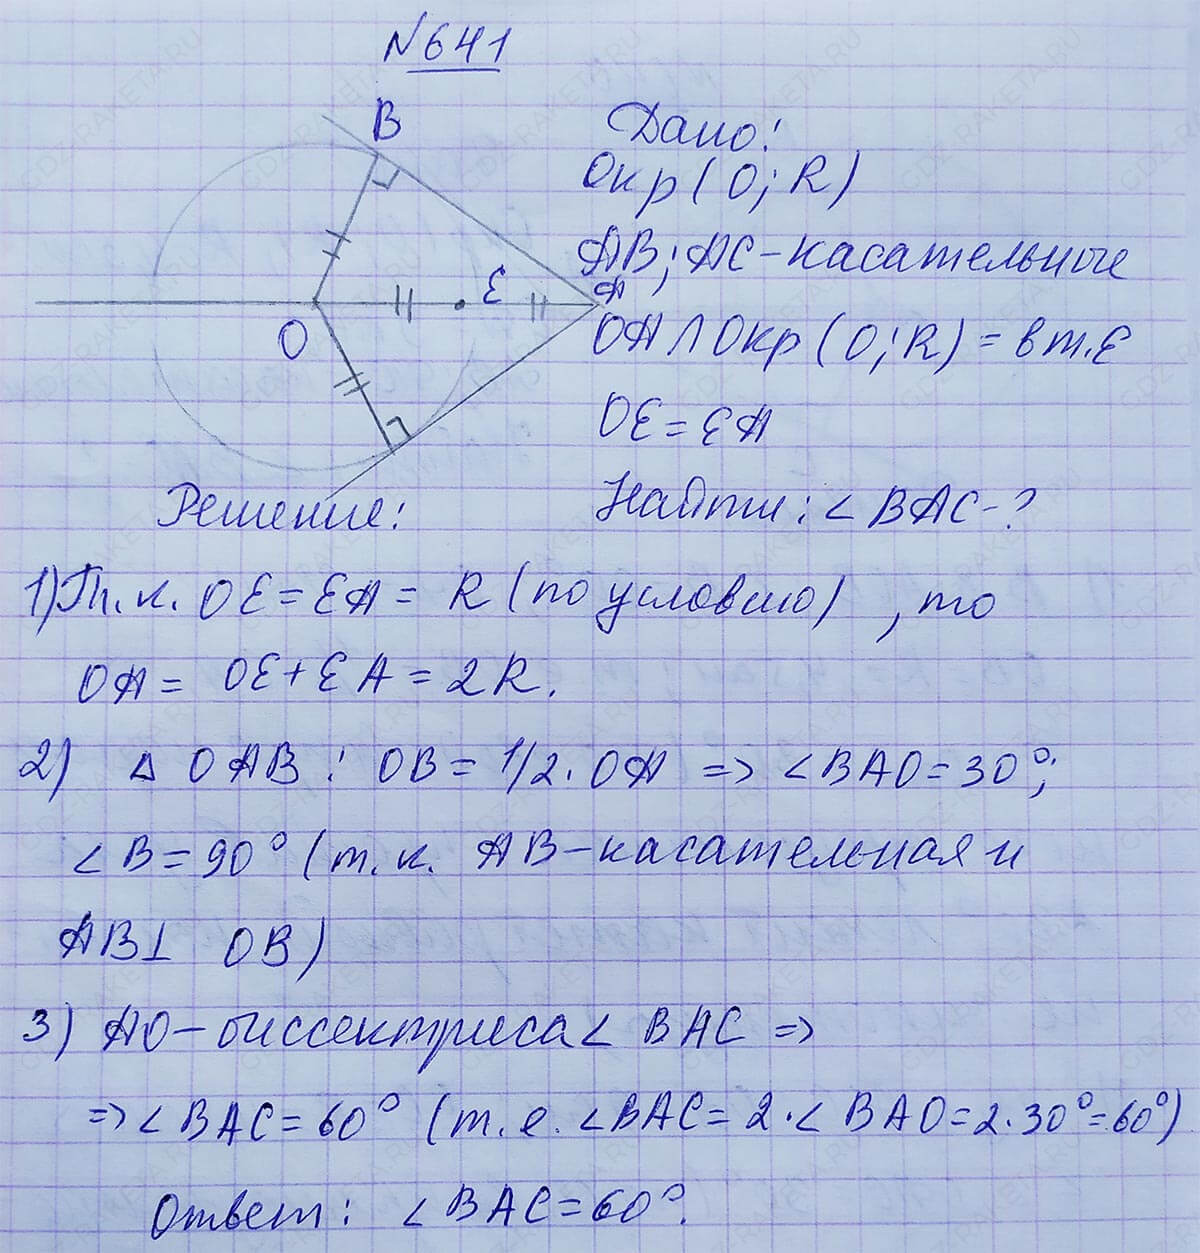 №641
B
E
A
O
Дано:
Окр(O; R)
AB; AC-касательные
OA∩Окр(O; R) = в т.E
OE = EA
Найти: ∠BAC-?
Решение:
1) Т.к. OE = EA = R (по условию), то
OA = OE + EA = 2R.
2) △ OAB : OB = 1/2 · OA => ∠BAO = 30°;
∠B = 90° (т.к. AB-касательная и
AB⊥ OB)
3) AO-биссектриса ∠ BAC =>
=> ∠BAC = 60° (т.е. ∠BAC = 2·∠BAO = 2·30° = 60°)
Ответ: ∠BAC = 60°.
GDZ-RAKETA.RU